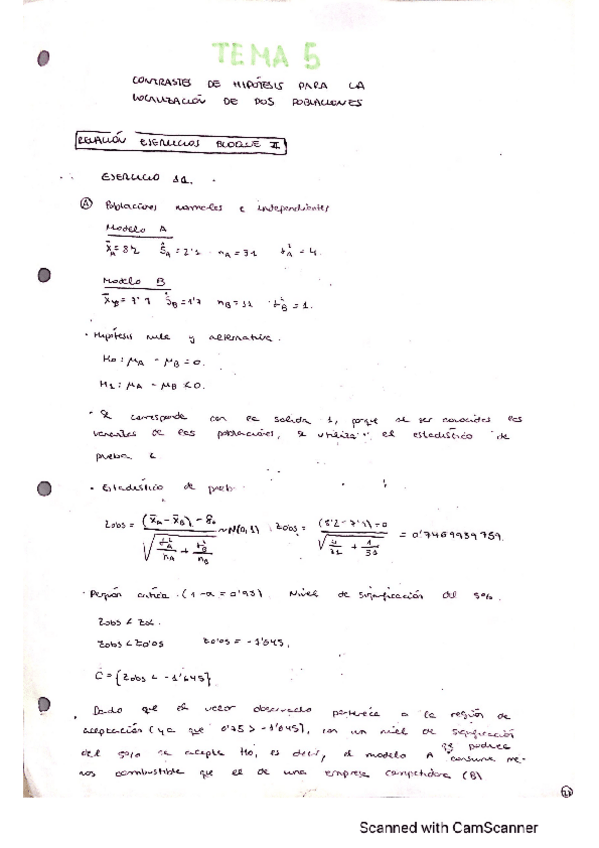 TEMA 5
CONTRASTES DE HIPÓTESIS PARA LA
LOCALIZACIÓN DE DOS POBLACIONES
RELACIÓN EJERCICIOS BLOQUE II
EJERCICIO
A Poblaciones normales e independientes
Modelo A
x̄A = 8'2 ŜA = 2'1 nA = 31 σ²A = 4.
Modelo B
ŜB = 1'7 σ²B = 1.
· Hipótesis nula y alternativa.
H0: μA - μB = 0.
H1: μA - μB < 0.
· Se corresponde con la salida 1, porque al ser conocidas las
varianzas de las poblaciones, se utiliza el estadístico de
prueba
· Estadístico de prueba
Zobs = (x̄A - x̄B) - δ0 / √(σ²A/nA + σ²B/nB) ~ N(0,1) Zobs = (8'2 - 7'9) - 0 / √(4/31 + 1/31) = 0'7469939759.
· Región crítica (1-α = 0'95) Nivel de significación del 5%
Zobs < Zα.
Zobs < Z0'05 Z0'05 = -1'645.
C = {Zobs < -1'645}
· Dado que el valor observado pertenece a la región de
aceptación (ya que 0'75 > -1'645), con un nivel de significación
del 5% se acepta H0, es decir, el modelo A consume me-
nos combustible que el de una empresa competidora (B)
Scanned with CamScanner